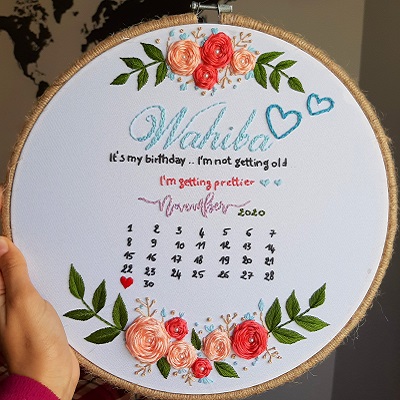 Wahiba
It's my birthday .. I'm not getting old
I'm getting prettier
November 2020
1 2 3 4 5 6 7
8 9 10 11 12 13 14
15 16 17 18 19 20 21
22 23 24 25 26 27 28
30